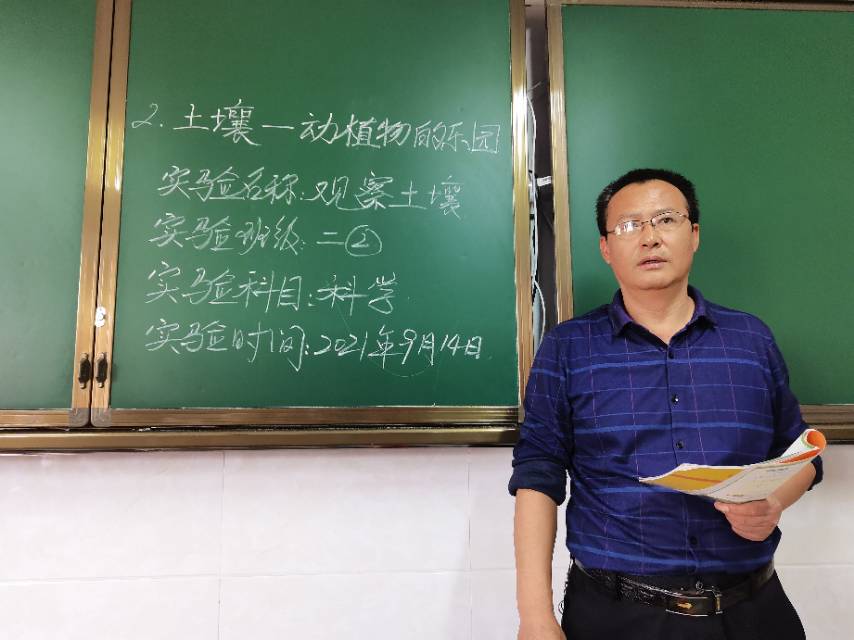 2. 土壤—动植物的乐园
实验名称: 观察土壤
实验班级: 二②
实验科目: 科学
实验时间: 2021年9月14日